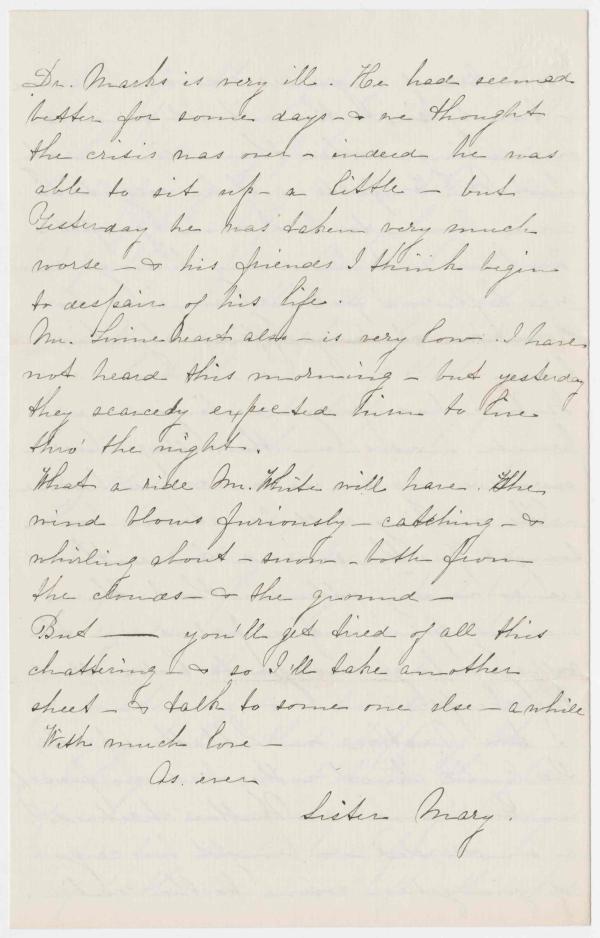 Dr. Marks is very ill. He had seemed
better for some days - & we thought
the crisis was over - indeed he was
able to sit up - a little - but
Yesterday he was taken very much
worse - & his friends I think begin
to despair of his life.
Mr. also - is very low. I have
not heard this morning - but yesterday
they scarcely expected him to live
thro' the night.
What a ride Mr. White will have. The
wind blows furiously - catching - &
whirling about - snow - both from
the clouds - & the ground -
But — you'll get tired of all this
chattering - & so I'll take another
sheet - & talk to some one else - a while
With much love -
As ever
Sister Mary.